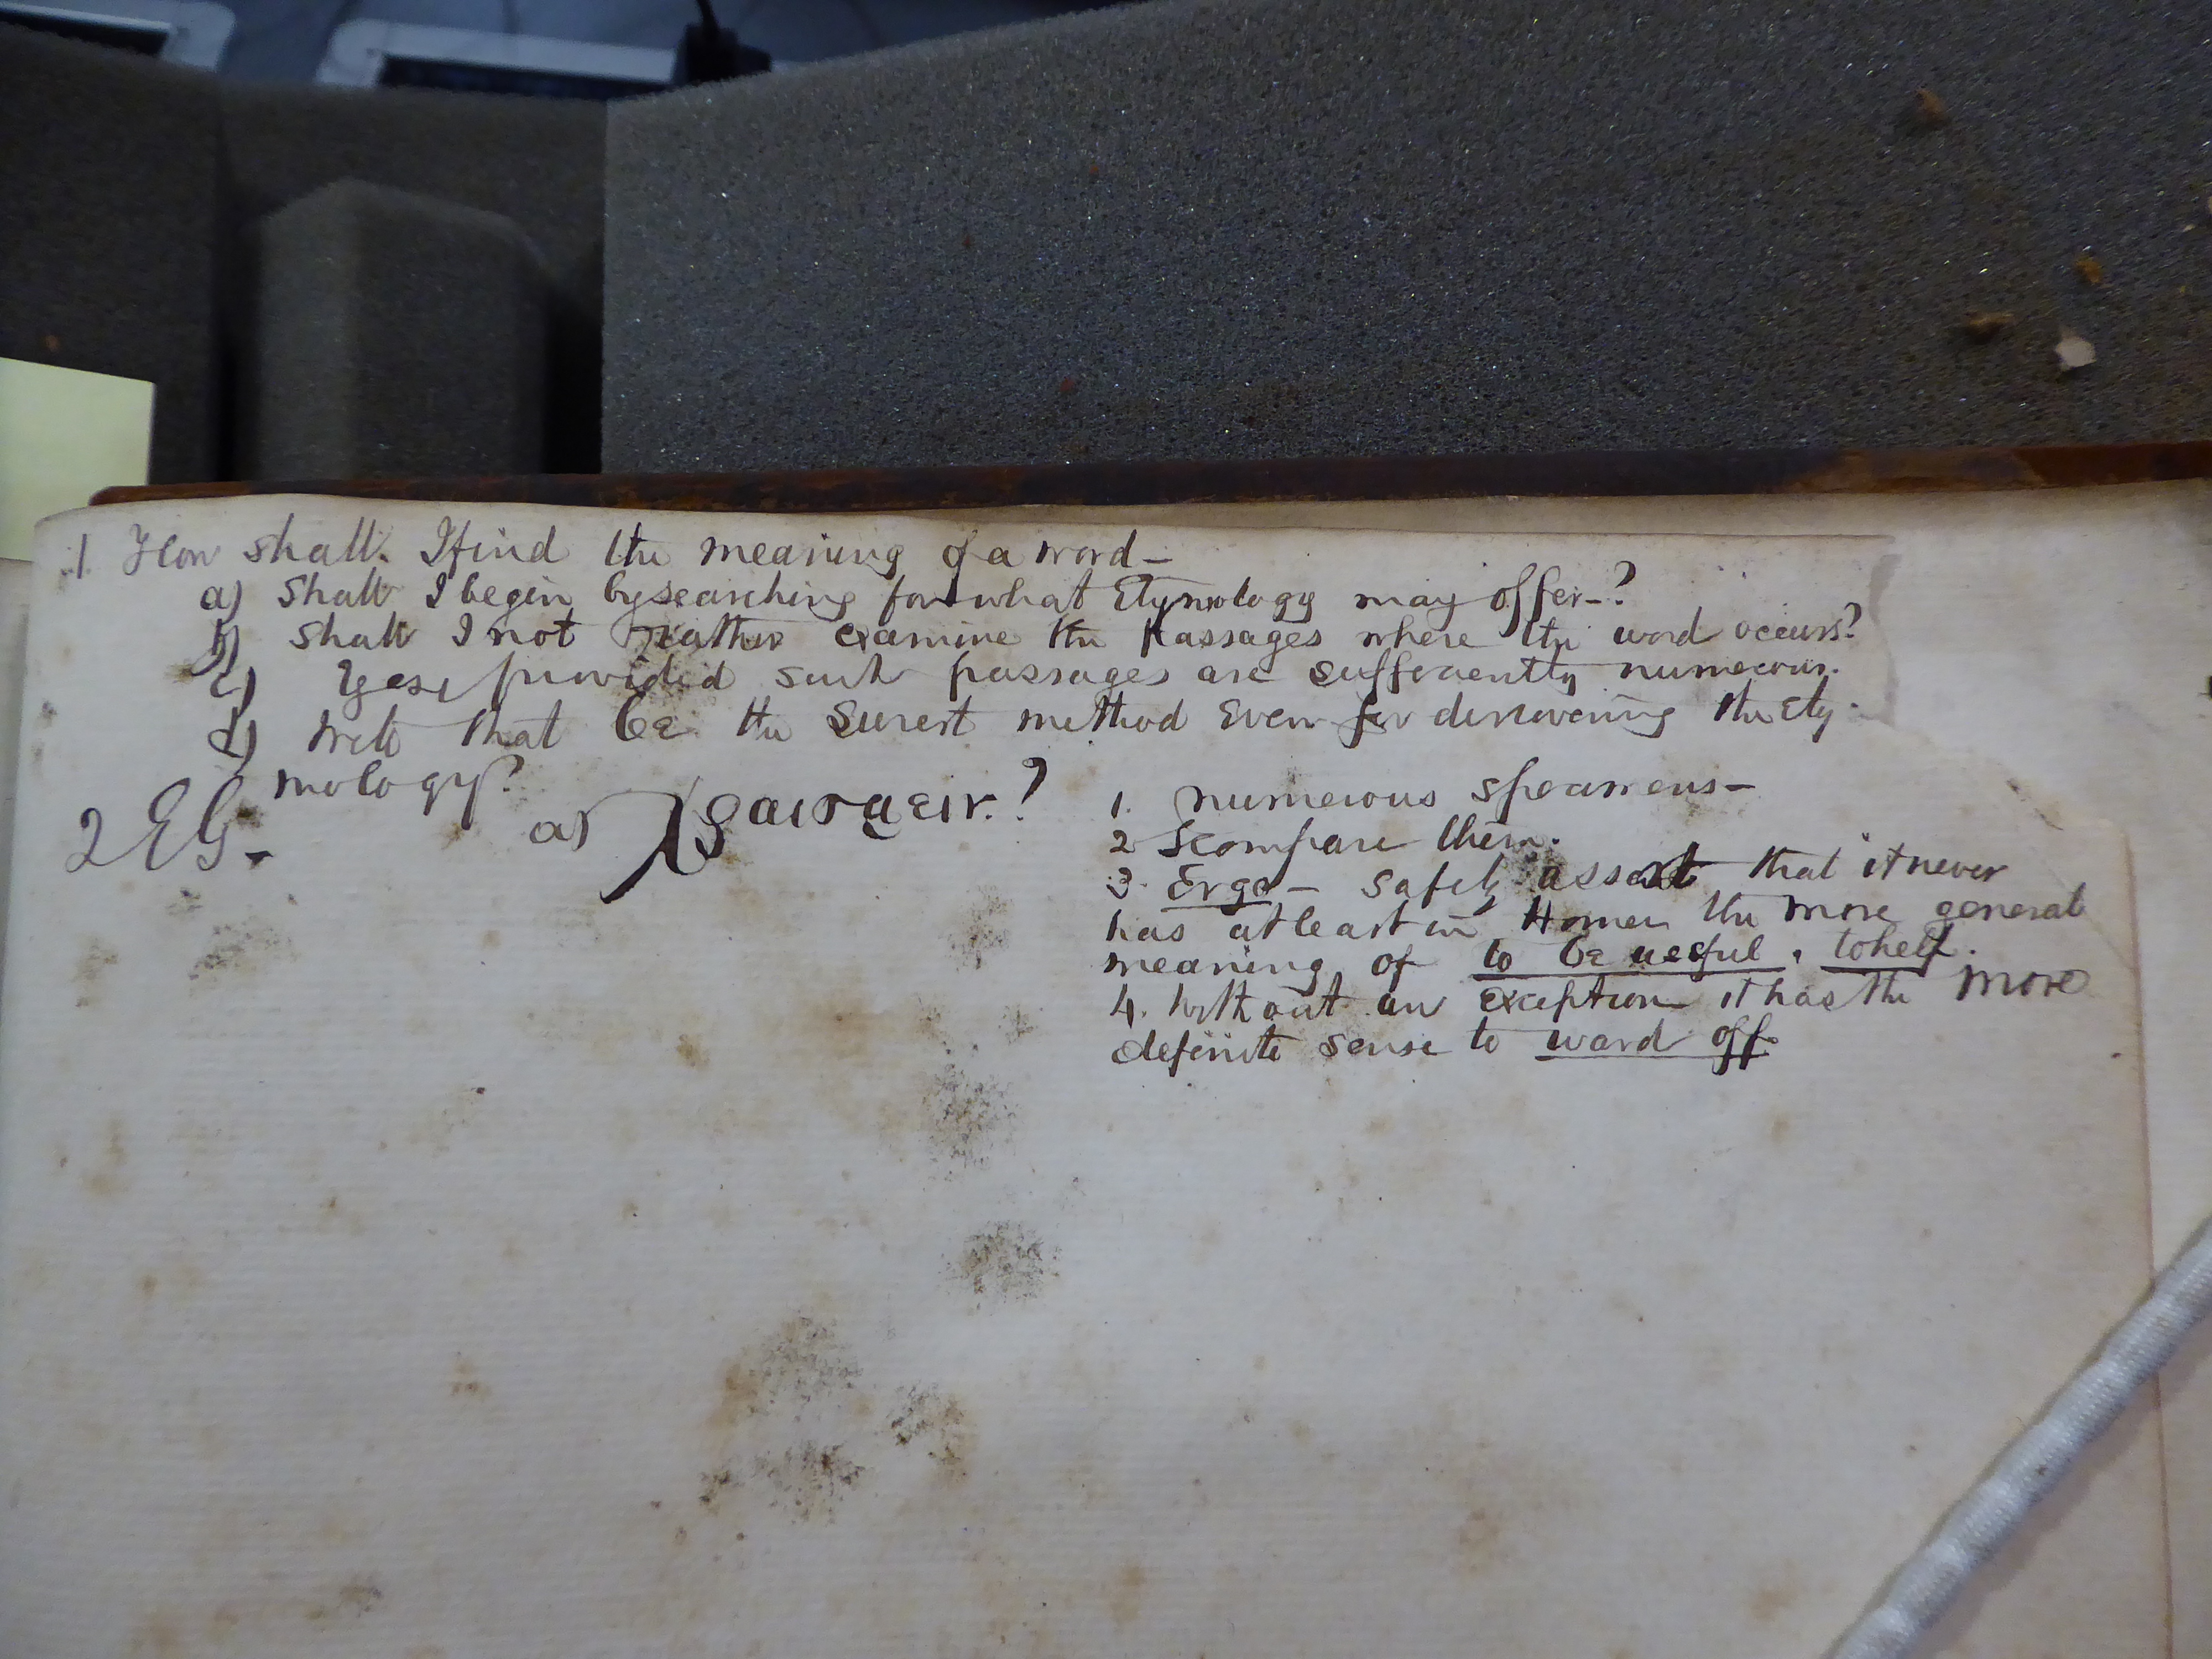 1 How shall I find the meaning of a word –
a) Shall I begin by searching for what Etymology may offer –?
b) Shall I not rather examine the Passages where the word occurs?
c) Yes, provided such passages are sufficiently numerous.
d) Will that be the Surest method Even for discovering the Ety-
mology?
2 EG. a)
1. numerous specimens –
2 compare them.
3. Ergo – safely assert that it never
has at least in Homer the more general
meaning of to be useful, to help.
4. Without an exception it has the more
definite sense to ward off.